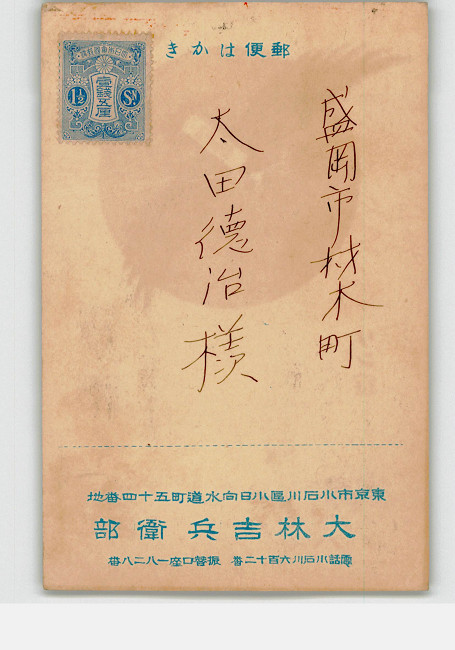 郵便はかき
壹銭五厘
1½ Sn
盛岡市材木町
太田德治様
東京市小石川區小日向水道町五十四番地
大林吉兵衛部
電話小石川六百十二番 振替口座一八二八番